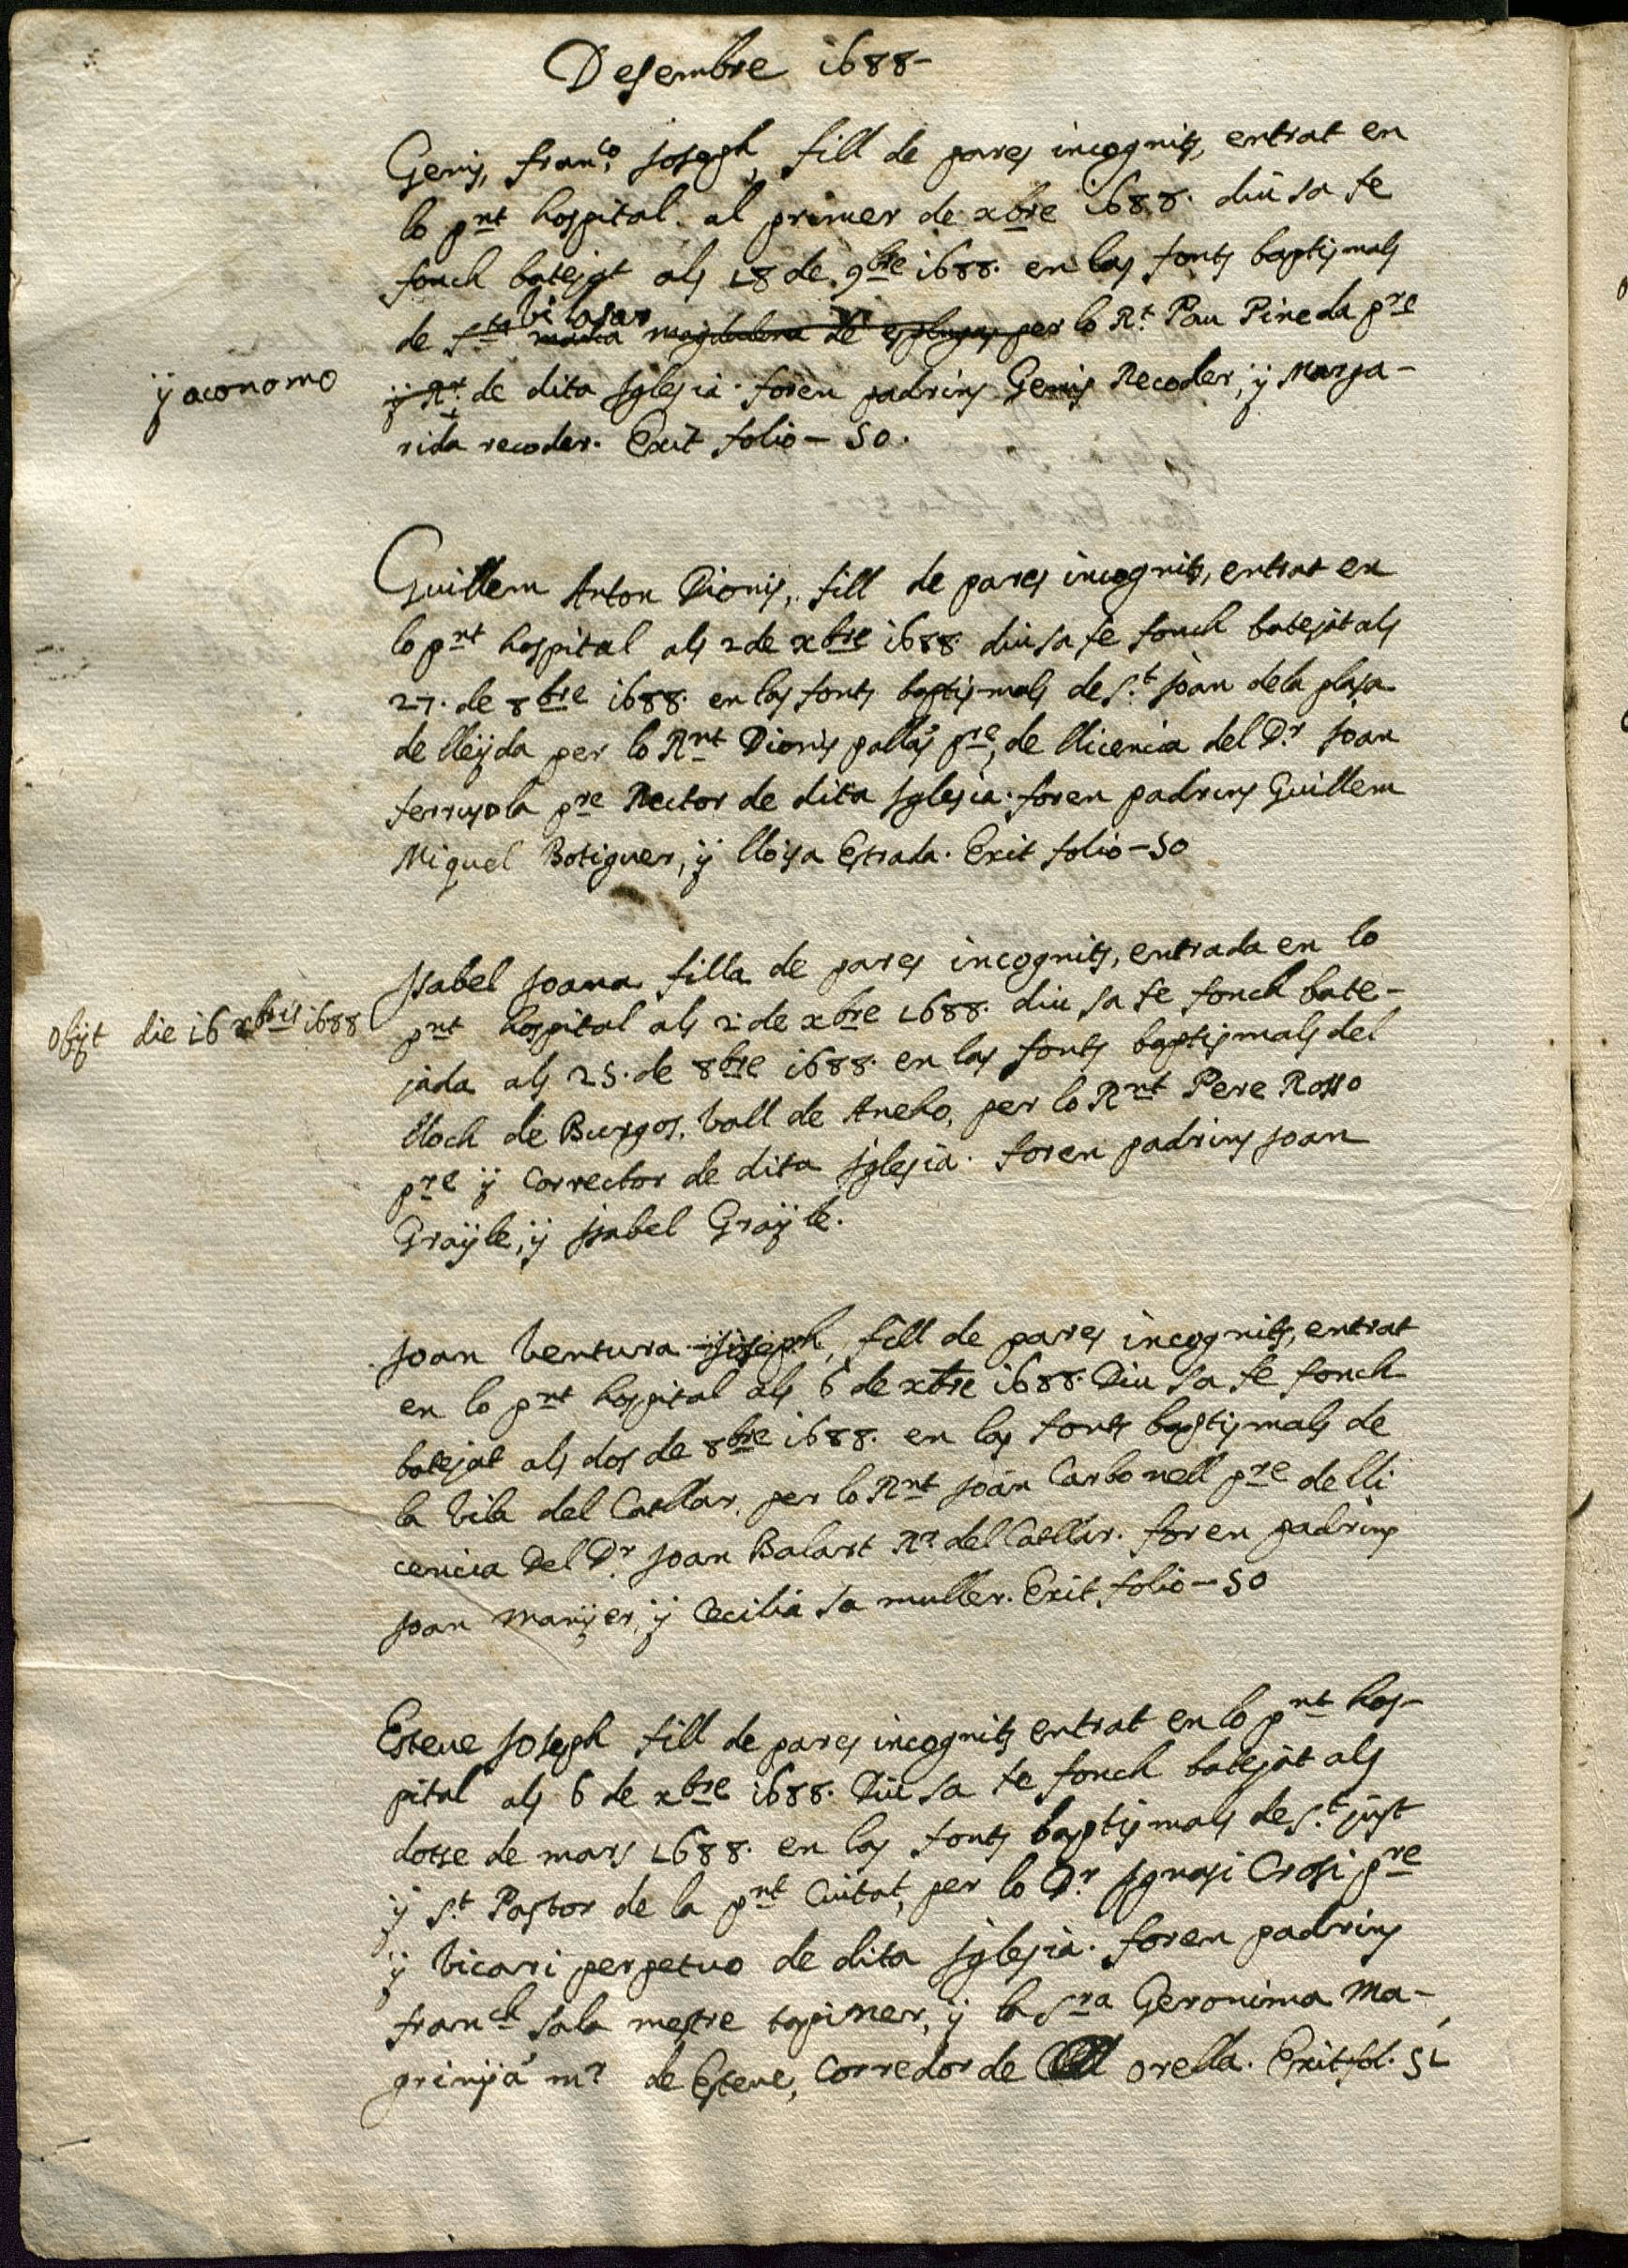 Desembre 1688-
Genis, Fran.co Joseph, fill de pares incognits, entrat en
lo pnt hospital al primer de xbre 1688. diu sa fe
fonch batejat als 18 de 9bre 1688. en las fonts baptismals
Vilasar
de sta maria magdalena de esplugas per lo Rt. Pau Pineda pre
ÿ aconomo
ÿ Rr. de dita Jglesia. foren padrins Genis Recoder, ÿ Marga-
rida recoder. Exit folio - 50.
Guillem Anton Dionis, fill de pares incognits, entrat en
lo pnt hospital als 2 de xbre 1688 diu sa fe fonch batejat als
27. de 8bre 1688. en las fonts baptismals de S.t Joan dela plasa
de lleÿda per lo Rnt Dionis pallás pre, de llicencia del D.r Joan
ferrusola pre Rector de dita Jglesia. foren padrins Guillem
Miquel Botiguer, ÿ lloisa Estrada. Exit folio - 50
Jsabel Joana filla de pares incognits, entrada en lo
Obÿt die 16 xbris 1688
pnt hospital als 2. de xbre 1688. diu sa fe fonch bate-
jada als 25. de 8bre 1688. en las fonts baptismals del
lloch de Burgos, vall de Aneho, per lo Rnt Pere Rosso
pre ÿ Corrector de dita Jglesia. foren padrins Joan
Graÿle, ÿ Jsabel Graÿle.
Joan Ventura Joseph, fill de pares incognits, entrat
en lo pnt hospital als 6 de xbre 1688. Diu sa fe fonch
batejat als dos de 8bre 1688. en las fonts baptismals de
la Vila del Catllar, per lo Rnt Joan Carbonell pre de lli
cencia Del D.r Joan Balart Rr. del Catllar. foren padrins
Joan Manÿer, ÿ Cecilia sa muller. Exit folio - 50
Esteve Joseph fill de pares incognits entrat en lo pnt hos-
pital als 6 de xbre 1688. Diu sa fe fonch batejat als
dotse de mars 1688. en las fonts baptismals de S.t just
ÿ S.t Pastor de la pnt Ciutat, per lo D.r Jgnasi Crosi pre
ÿ Vicari perpetuo de dita Jglesia. foren padrins
franch sala mestre tapiner, ÿ la Sra Geronima Ma-
grinÿá mr. de Esteve, Corredor de orella. Exit fol. 51